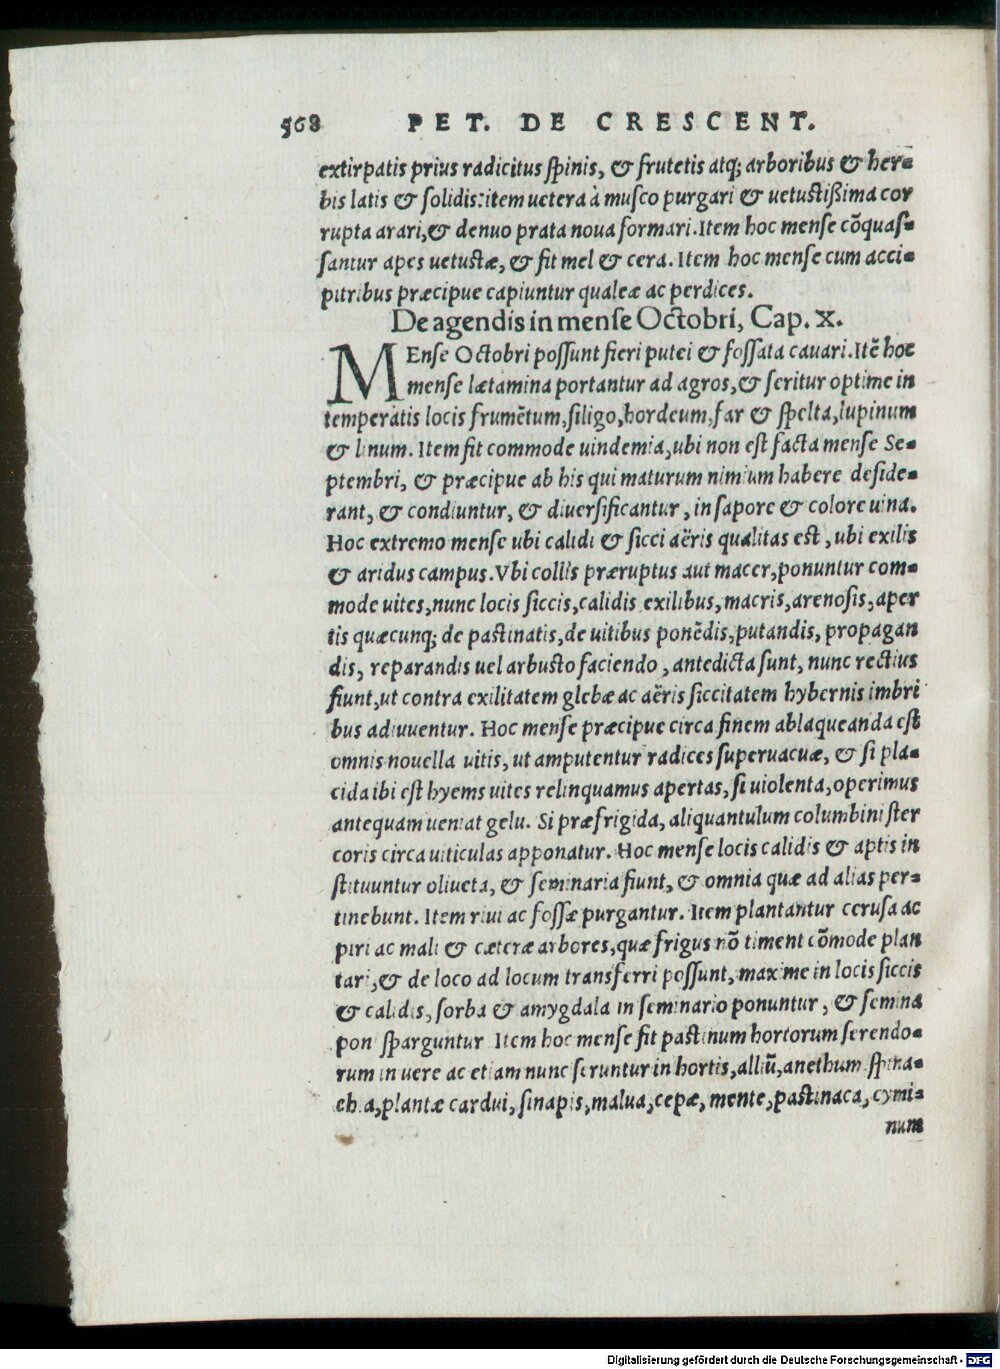 568 PET. DE CRESCENT.
extirpatis prius radicitus ſpinis, & frutetis atq; arboribus & her-
bis latis & ſolidis: item uetera à muſco purgari & uetuſtißima cor
rupta arari, & denuo prata noua formari. Item hoc menſe cõquaſ-
ſantur apes uetuſtæ, & fit mel & cera. Item hoc menſe cum acci-
pitribus præcipue capiuntur qualeæ ac perdices.
De agendis in menſe Octobri, Cap. X.
MEnſe Octobri poſſunt fieri putei & foſſata cauari. Itẽ hoc
menſe lætamina portantur ad agros, & ſeritur optime in
temperatis locis frumẽtum, ſiligo, hordeum, far & ſpelta, lupinum
& linum. Item fit commode uindemia, ubi non eſt facta menſe Se-
ptembri, & præcipue ab his qui maturum nimium habere deſide-
rant, & condiuntur, & diuerſificantur, in ſapore & colore uina.
Hoc extremo menſe ubi calidi & ſicci aëris qualitas eſt, ubi exilis
& aridus campus. Vbi collis præruptus aut macer, ponuntur com-
mode uites, nunc locis ſiccis, calidis exilibus, macris, arenoſis, aper
tis quæcunq; de paſtinatis, de uitibus ponẽdis, putandis, propagan
dis, reparandis uel arbuſto faciendo, antedicta ſunt, nunc rectius
fiunt, ut contra exilitatem glebæ ac aëris ſiccitatem hybernis imbri
bus adiuuentur. Hoc menſe præcipue circa finem ablaqueanda eſt
omnis nouella uitis, ut amputentur radices ſuperuacuæ, & ſi pla-
cida ibi eſt hyems uites relinquamus apertas, ſi uiolenta, operimus
antequam ueniat gelu. Si præfrigida, aliquantulum columbini ſter
coris circa uiticulas apponatur. Hoc menſe locis calidis & aptis in
ſtituuntur oliueta, & ſeminaria fiunt, & omnia quæ ad alias per-
tinebunt. Item riui ac foſſæ purgantur. Item plantantur ceruſa ac
piri ac mali & cæteræ arbores, quæ frigus nõ timent cõmode plan
tari, & de loco ad locum transferri poſſunt, maxime in locis ſiccis
& calidis, ſorba & amygdala in ſeminario ponuntur, & ſemina
pon ſparguntur Item hoc menſe fit paſtinum hortorum ſerendo-
rum in uere ac etiam nunc ſeruntur in hortis, alliũ, anethum ſpina-
chia, plantæ cardui, ſinapis, malua, cepæ, mente, paſtinaca, cymi-
num
Digitalisierung gefördert durch die Deutsche Forschungsgemeinschaft - DFG